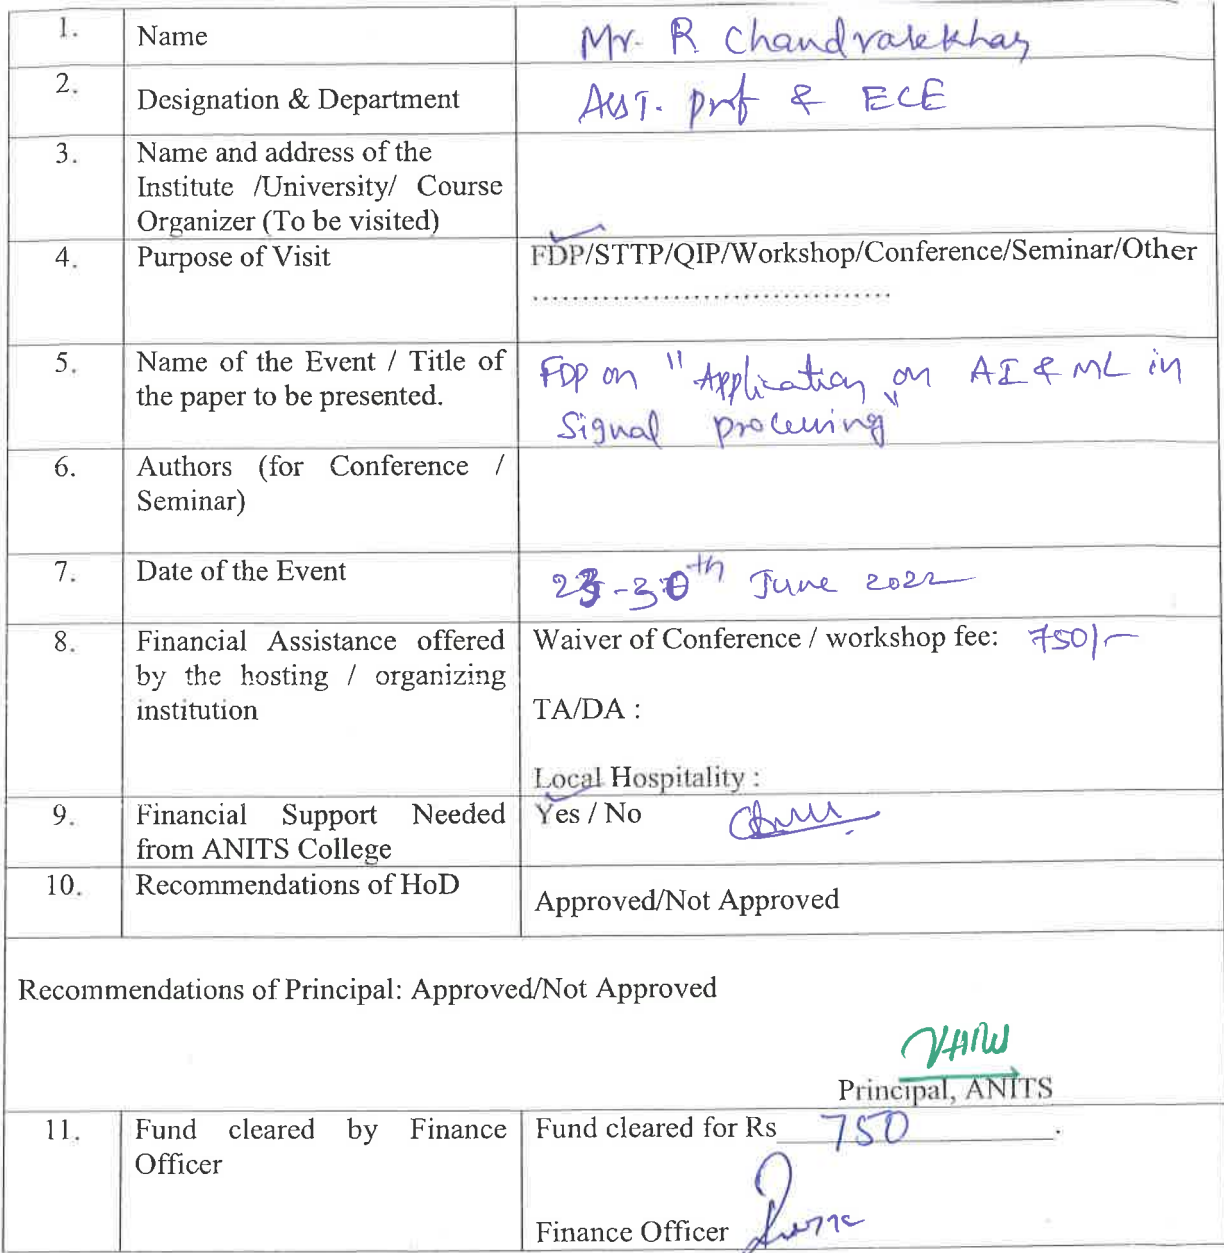 1. Name Mr. R Chandrasekhar
2. Designation & Department Asst. prof & ECE
3. Name and address of the
Institute /University/ Course
Organizer (To be visited)
4. Purpose of Visit FDP/STTP/QIP/Workshop/Conference/Seminar/Other
....................................
5. Name of the Event / Title of FDP on "Application on AI & ML in
the paper to be presented. Signal processing"
6. Authors (for Conference /
Seminar)
7. Date of the Event 23-30th June 2022
8. Financial Assistance offered Waiver of Conference / workshop fee: 750/-
by the hosting / organizing
institution TA/DA :
Local Hospitality :
9. Financial Support Needed Yes / No
from ANITS College
10. Recommendations of HoD Approved/Not Approved
Recommendations of Principal: Approved/Not Approved
Principal, ANITS
11. Fund cleared by Finance Fund cleared for Rs 750.
Officer
Finance Officer